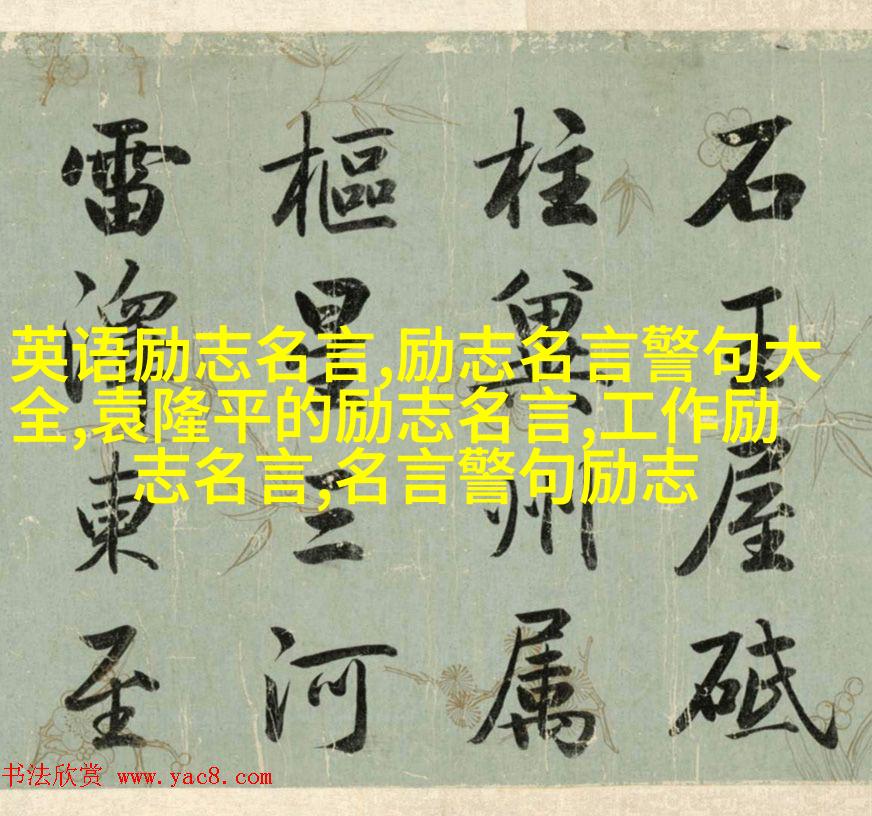 石王屋砥
柱冀州属
樞星三河
雷澤東至
英语励志名言,励志名言警句大
全,袁隆平的励志名言,工作励
志名言,名言警句励志
书法欣赏 www.yac8.com